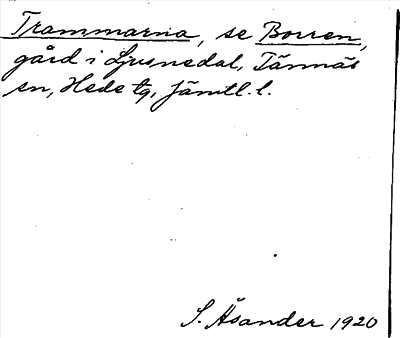 Trammarna, se Borren,
gård i Ljusnedal, Tännäs
sn, Hede tg, Jämtl. l.
S. Åsander 1920